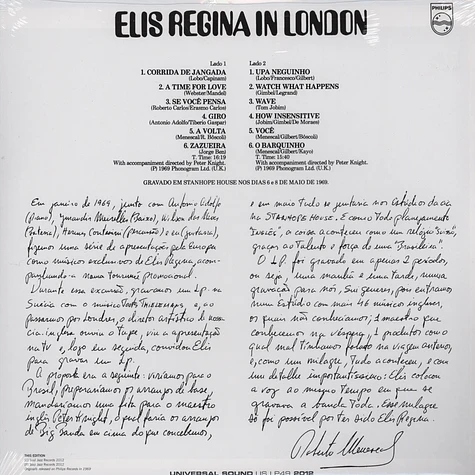 ELIS REGINA IN LONDON
PHILIPS
Lado 1
1. CORRIDA DE JANGADA
(Lobo/Capinam)
2. A TIME FOR LOVE
(Webster/Mandel)
3. SE VOCÊ PENSA
(Roberto Carlos/Erasmo Carlos)
4. GIRO
(Antonio Adolfo/Tiberio Gaspar)
5. A VOLTA
(Menescal/R. Bôscoli)
6. ZAZUEIRA
(Jorge Ben)
T. Time: 16:19
With accompaniment directed by Peter Knight.
(P) 1969 Phonogram Ltd. (U.K.)
Lado 2
1. UPA NEGUINHO
(Lobo/Francesco/Gilbert)
2. WATCH WHAT HAPPENS
(Gimbel/Legrand)
3. WAVE
(Tom Jobim)
4. HOW INSENSITIVE
(Jobim/Gimbel/De Moraes)
5. VOCÊ
(Menescal/Gilbert/Bôscoli)
6. O BARQUINHO
(Menescal/Gilbert/Kayo)
T. Time: 15:40
With accompaniment directed by Peter Knight.
(P) 1969 Phonogram Ltd. (U.K.)
GRAVADO EM STANHOPE HOUSE NOS DIAS 6 e 8 DE MAIO DE 1969.
Em janeiro de 1969, junto com Antonio Adolfo
(piano), (Baixo), Wilson das Neves
(Bateria), Hermes Contesini (percussão) e eu (guitarra),
fizemos uma série de apresentações pela Europa
como músicos exclusivos de Elis Regina, acom-
panhando-a numa tournée promocional.
Durante essa excursão, gravamos um L.p. na
Suécia com o músico Toots Thielemans e, ao
passarmos por Londres, o diretor artístico de nossa
cia. inglesa ouviu o tape, viu a apresentação
na TV e, logo em seguida, convidou Elis
para gravar um L.p.
A proposta era a seguinte: viríamos para o
Brasil, prepararíamos os arranjos de base,
mandaríamos uma fita para o maestro
inglês Peter Knight, o qual faria os arranjos
de Big Banda em cima do que concebemos,
e em maio tudo se juntaria nos estúdios da cia
na STANHOPE HOUSE. E como todo planejamento
"inglês", a coisa aconteceu como um relógio "suíço",
graças ao talento e força de uma "Brasileira".
O L.P. foi gravado em apenas 2 períodos,
ou seja, uma manhã e uma tarde, numa
gravação para nós, sui generis, pois entramos
num estúdio com mais 46 músicos ingleses,
os quais não conhecíamos; 1 maestro que
conhecemos na véspera, 1 produtor com o
qual mal tínhamos falado na viagem anterior,
e, como um milagre, tudo aconteceu, e com
um detalhe importantíssimo: Elis colocou
a voz ao mesmo tempo em que se
gravava a banda toda. Esse milagre
só foi possível por ter sido Elis Regina.
Roberto Menescal
THIS EDITION
UNIVERSAL SOUND US LP49 2012